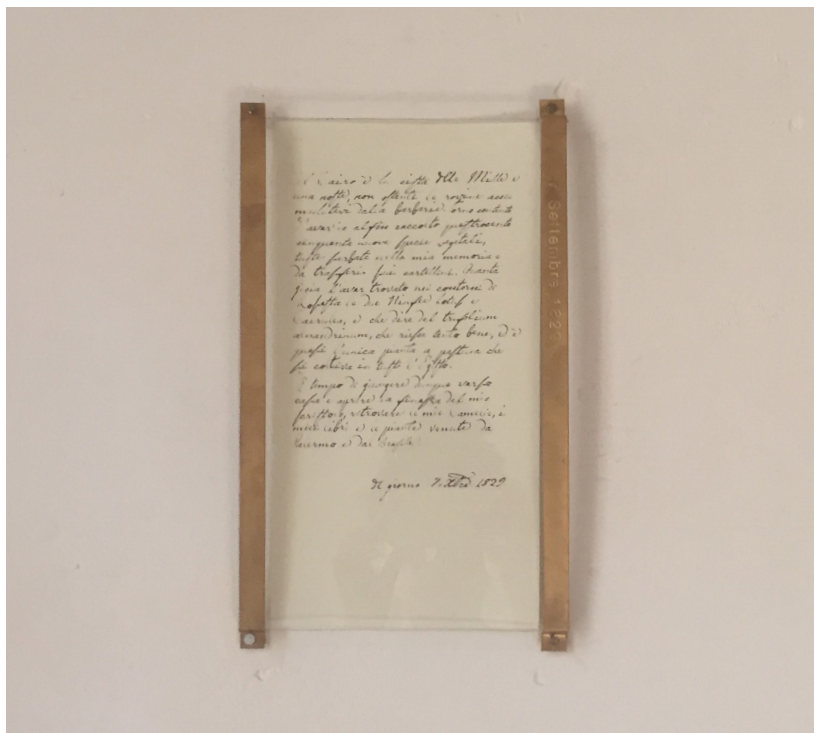 Il Cairo è la città delle Mille e
una notte, non ostante le rovine accu
mulatevi dalla barbarie. sono contento
d'aver io alfin raccolto quattrocento
cinquanta nuove specie vegetali,
tutte serbate nella mia memoria e
da trasferir sui cartellini. Quanta
gioia l'aver trovato nei contorni di
Rosetta le due Ninfee lotus e
caerulea, e che dire del trifolium
alexandrinum, che riesce tanto bene, ed è
quasi l'unica pianta a pastura che
si coltiva in tutto l'Egitto.
È tempo di giungere dunque verso
casa e aprire la finestra del mio
scrittoio, ritrovare le mie camicie, i
miei libri e le piante venute da
Palermo e dai
di giorno 7. 1829
7 Settembre 1829